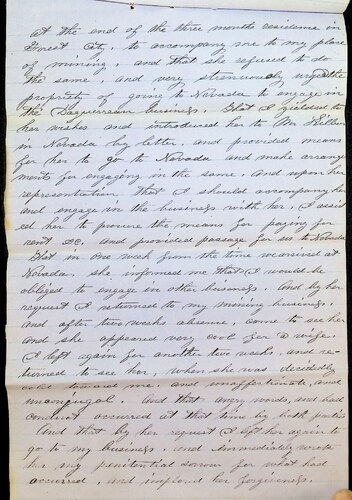 at the end of the three months residence in
Forest City, to accompany me to my place
of mining, and that she refused to do
the same, and very strenuously urged the
propriety of going to Nevada to engage in
the Daguerrean business. That I yielded to
her wishes and introduced her to Mr
in Nevada by letter, and provided means
for her to go to Nevada and make arrange
ments for engaging in the same. And upon her
representation that I should accompany her
and engage in the business with her, I assist
ed her to procure the means for paying for
rent &c. and provided passage for us to Nevada
That in one week from the time we arrived at
Nevada she informed me that I would be
obliged to engage in other business. And by her
request I returned to my mining business,
and after two weeks absence, came to see her
and she appeared very cool for a wife.
I left again for another two weeks, and re-
turned to see her, when she was decidedly
cold toward me, and unaffectionate, and
unconjugal. And that angry words, and had
conduct occurred at that time by both parties
And that by her request I left her again to
go to my business. And immediately wrote
her my penitential sorrow for what had
occurred, and implored her forgiveness.